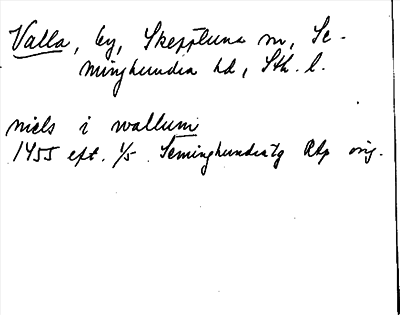 Valla, by, Skepptuna sn, Se-
minghundra hd, Sth. l.
niels i wallum
1455 eft. 1/5 Seminghundratg Rkp orig.